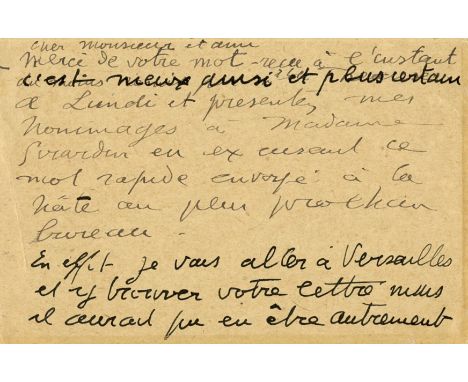 cher monsieur et ami
Merci de votre mot reçu à l'instant
c'est mieux ainsi et plus certain
à Lundi et présentez mes
hommages à Madame
Girardin en excusant ce
mot rapide envoyé à la
hâte au plus prochain
bureau -
En effet je vais aller à Versailles
et y trouver votre lettre mais
il aurait pu en être autrement